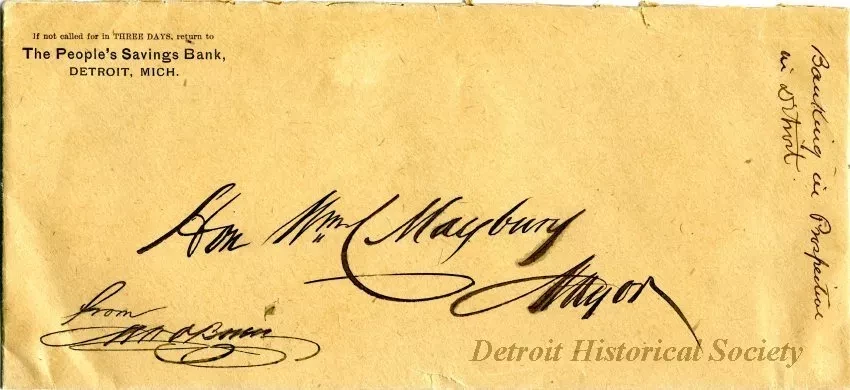 If not called for in THREE DAYS, return to
The People's Savings Bank,
DETROIT, MICH.
Banking in Prospective
in Detroit
Hon Wm C Maybury
Mayor
from
Detroit Historical Society